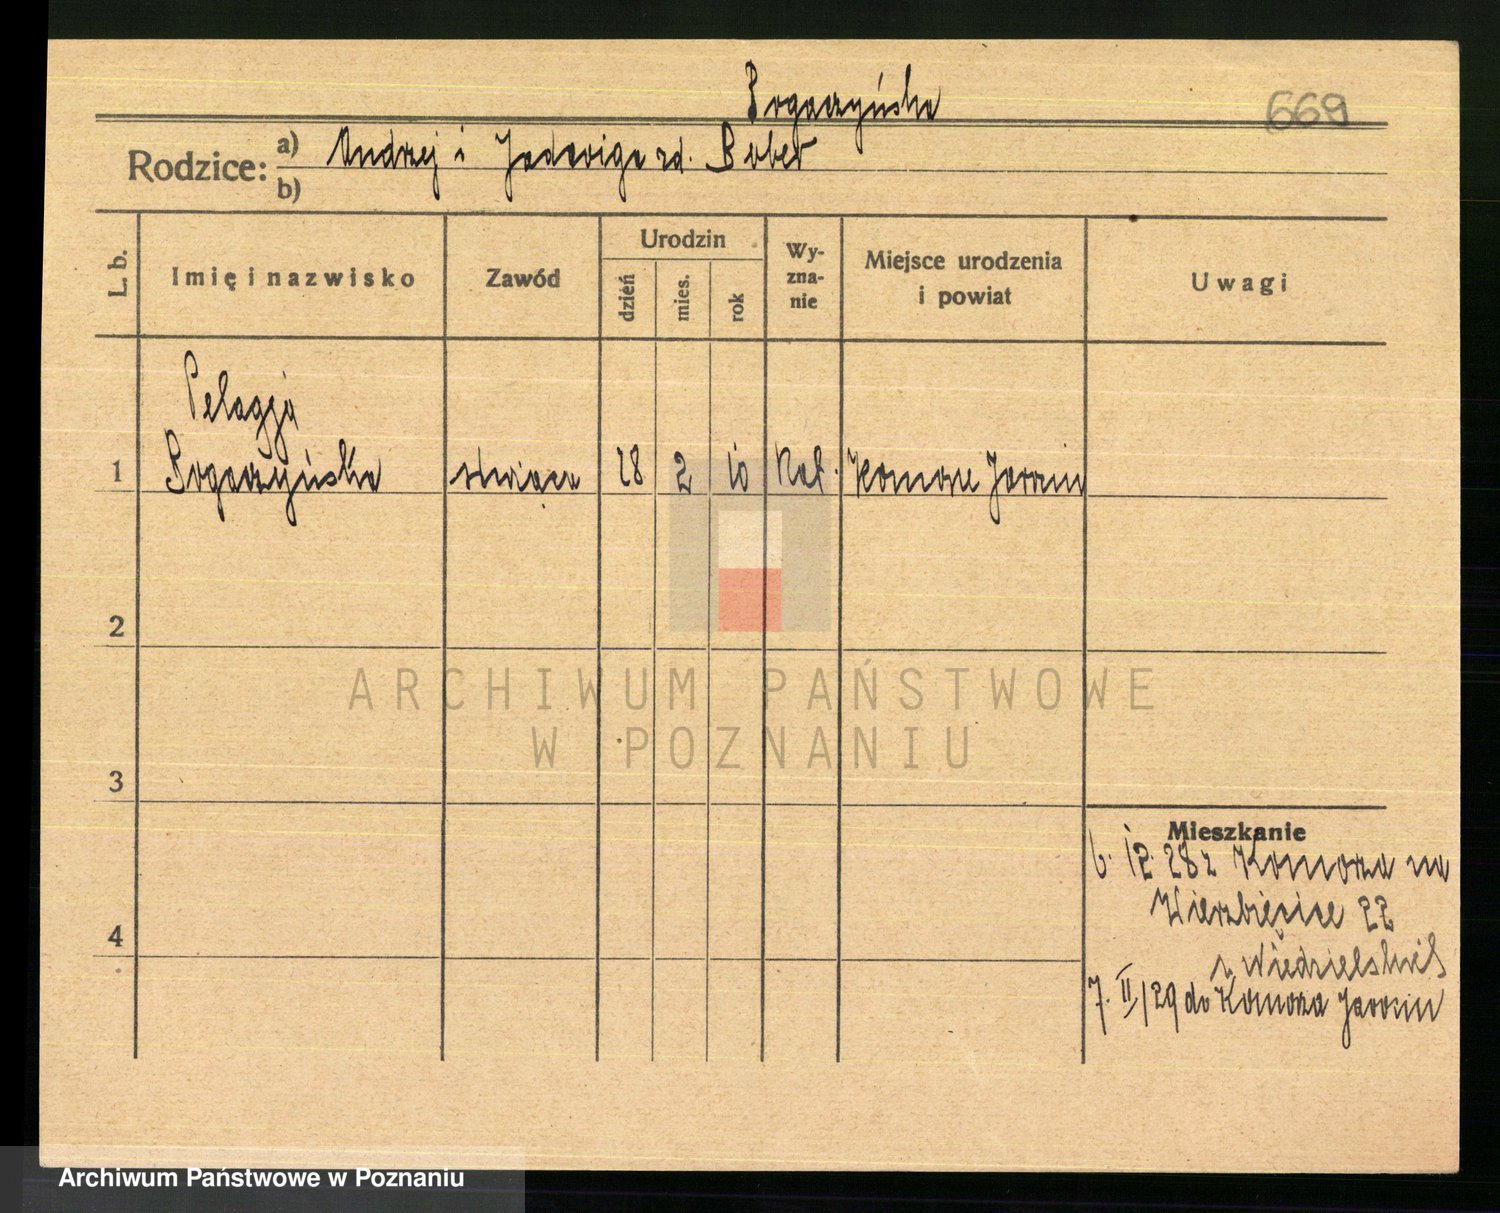 Rogaczyńska
669
Rodzice: a) Andrzej i Jadwiga zd. Bober
b)
L. b. Imię i nazwisko Zawód Urodzin dzień mies. rok Wyznanie Miejsce urodzenia i powiat Uwagi
Pelagja
1 Rogaczyńska służąca 28 2 10 Kat. Komorze Jarocin
2
3
4
Mieszkanie
6. 12. 28 z Komorza na
Wierzbięcice 22
7. II/29 do Komorza Jarocin
ARCHIWUM PAŃSTWOWE
W POZNANIU
Archiwum Państwowe w Poznaniu